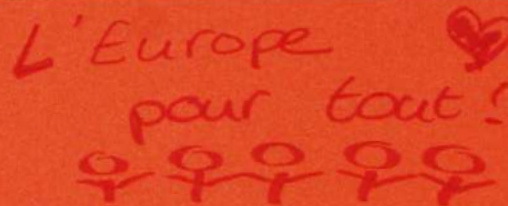 L'Europe
pour tout!